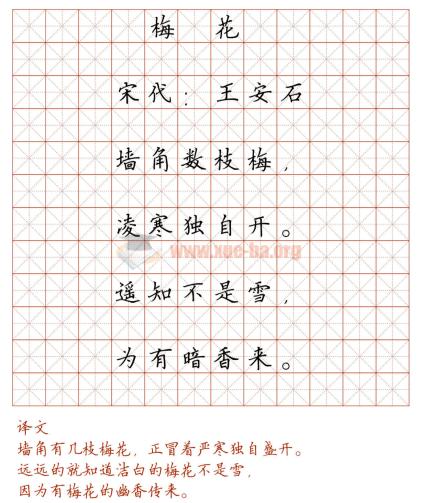 梅 花
宋代：王安石
墙角数枝梅，
凌寒独自开。
www.xue-ba.org
遥知不是雪，
为有暗香来。
译文
墙角有几枝梅花，正冒着严寒独自盛开。
远远的就知道洁白的梅花不是雪，
因为有梅花的幽香传来。